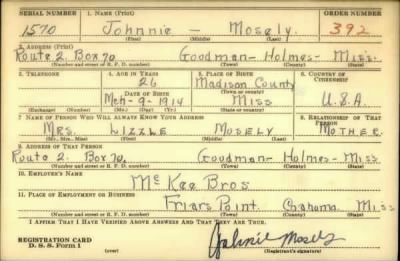 SERIAL NUMBER 1. NAME (Print) ORDER NUMBER
1570 Johnnie - Mosely. 392
(First) (Middle) (Last)
2. ADDRESS (Print)
Route 2. Box 70. Goodman - Holmes - Miss.
(Number and street or R. F. D. number) (Town) (County) (State)
3. TELEPHONE 4. AGE IN YEARS 5. PLACE OF BIRTH 6. COUNTRY OF CITIZENSHIP
26 Madison County
DATE OF BIRTH (Town or county)
Mch-9-1914 Miss U.S.A.
(Exchange) (Number) (Mo.) (Day) (Yr.) (State or country)
7. NAME OF PERSON WHO WILL ALWAYS KNOW YOUR ADDRESS 8. RELATIONSHIP OF THAT PERSON
Mrs. Lizzle Mosely Mother.
(Mr., Mrs., Miss) (First) (Middle) (Last)
9. ADDRESS OF THAT PERSON
Route 2. Box 70. Goodman - Holmes - Miss.
(Number and street or R. F. D. number) (Town) (County) (State)
10. EMPLOYER'S NAME
McKee Bros
11. PLACE OF EMPLOYMENT OR BUSINESS
Friars Point. Cahoma Miss
(Number and street or R. F. D. number) (Town) (County) (State)
I AFFIRM THAT I HAVE VERIFIED ABOVE ANSWERS AND THAT THEY ARE TRUE.
REGISTRATION CARD
D. S. S. Form 1
Johnie Mosely
(Registrant's signature)